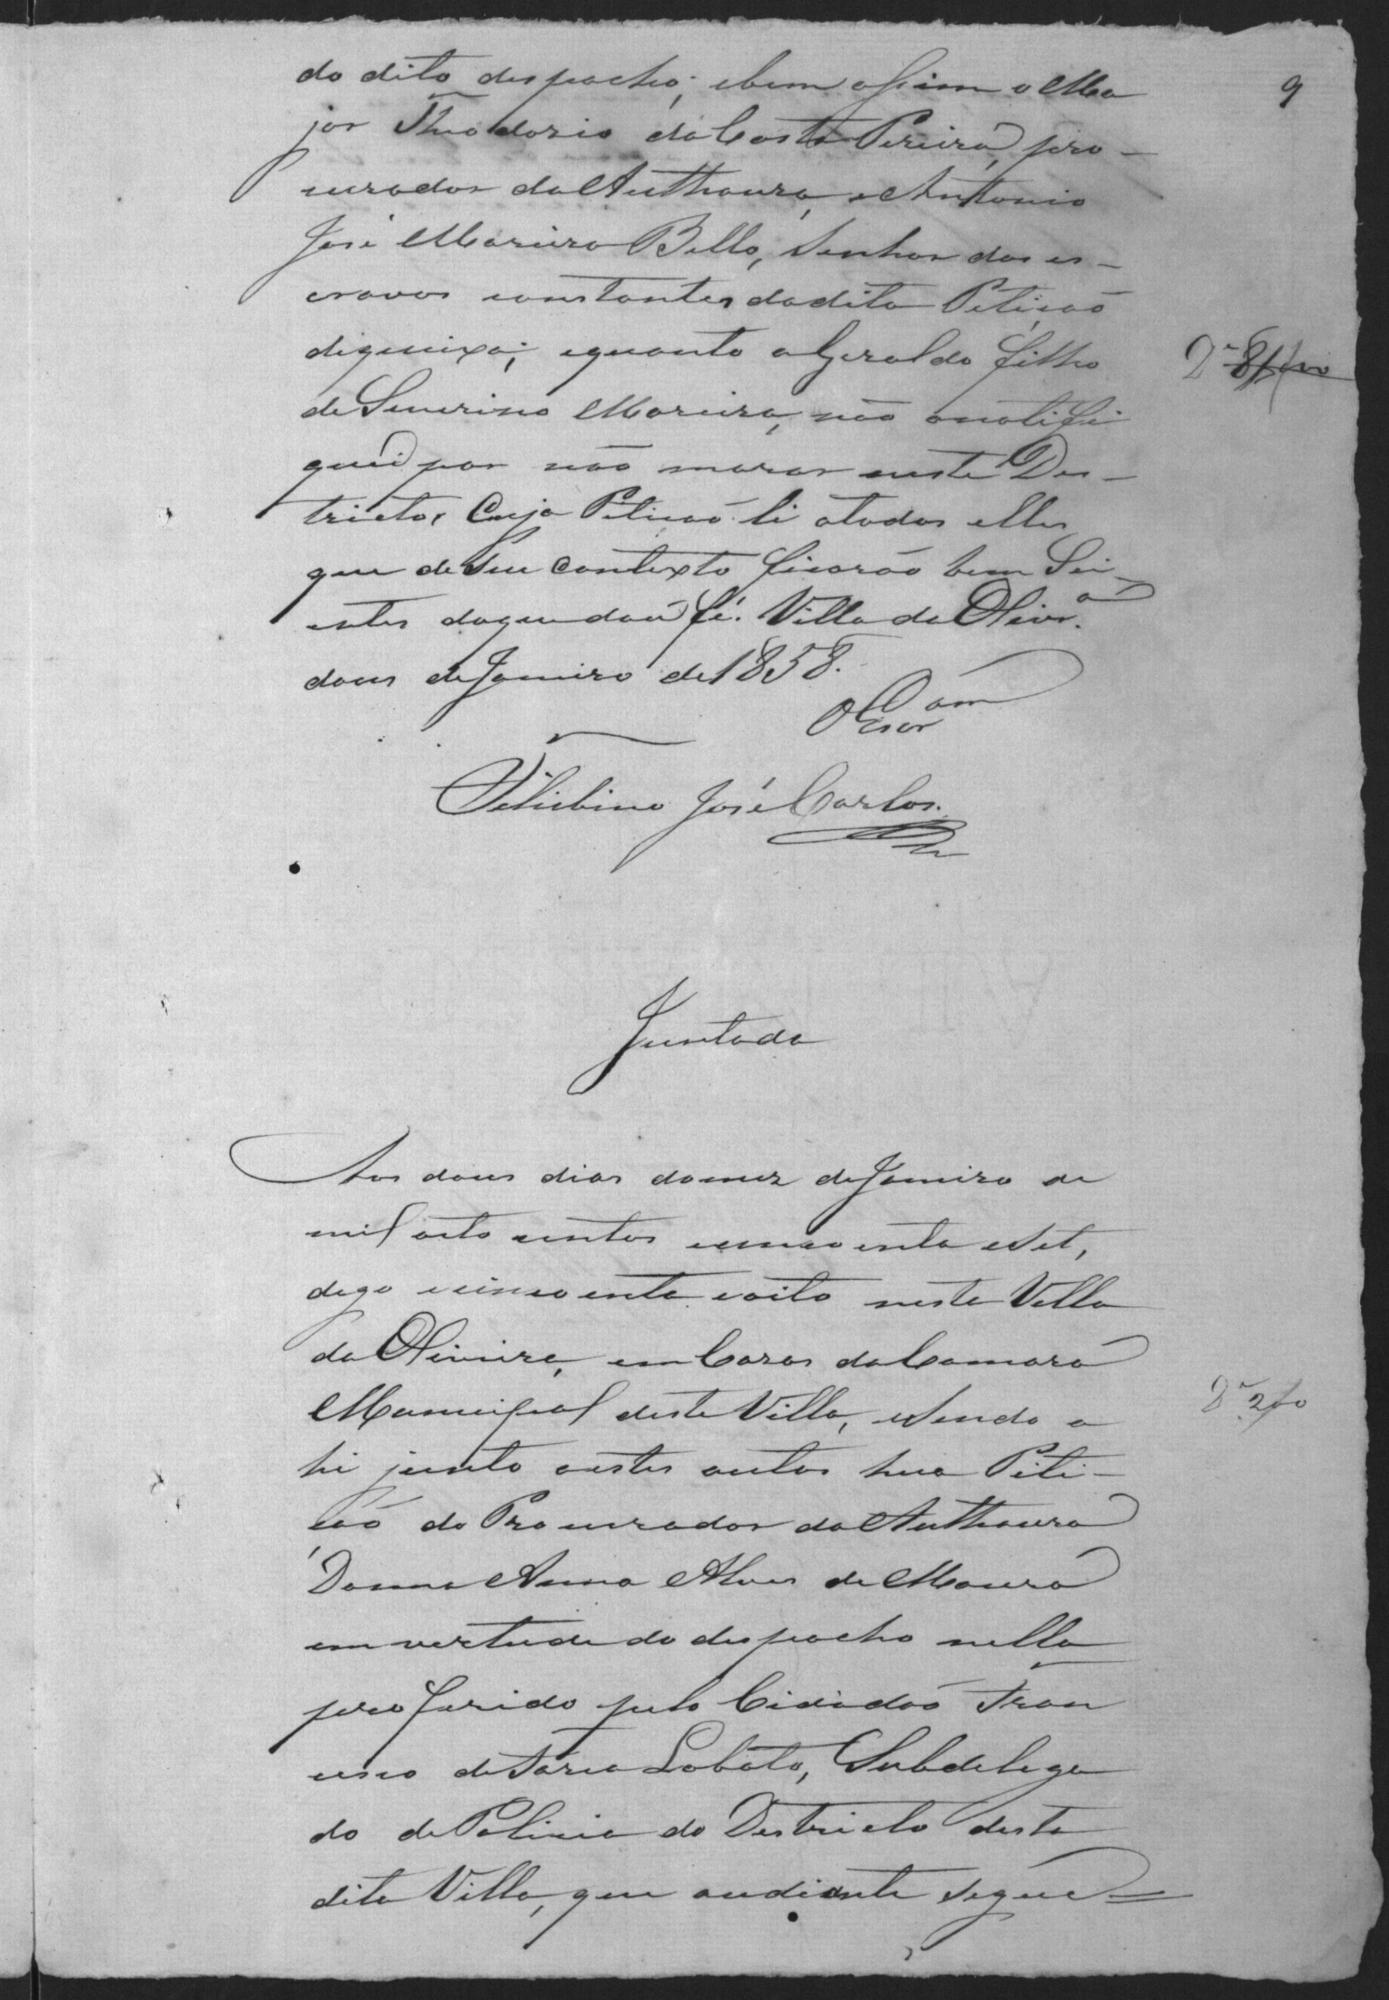 9
do dito despacho; e bem assim o Ma
jor Theodorio da Costa Pereira, pro-
curador da Authoura, e Antonio
José Moreira Bello, Senhor dos es-
cravos constantes da dita Petiçaõ
de queixa; e quanto a Geraldo filho
de Severino Moreira, naõ o notifi
quei por naõ morar neste Des-
tricto, Cuja Petiçaõ li a todos elles
que de Seu Contexto ficaraõ bem Sci-
entes do que dou fé. Villa da Olivrª.
dous de Janeiro de 1858.
O Escam
José Carlos.
Juntada
Aos dous dias do mez de Janeiro de
mil oito centos e cincoenta e Set,
digo e cincoenta e oito nesta Villa
da Oliveira, em Casas da Camara
Municipal desta Villa, e Sendo a
hi junto a estes autos hua Peti-
çaõ do Procurador da Authoura
Donna Anna Alves de Moura
em vertude do despacho nella
proferido pelo Cidadaõ Fran
cisco de Faria Lobato, Subdelega
do de Policia do Destricto desta
dita Villa, que audiante Segue=